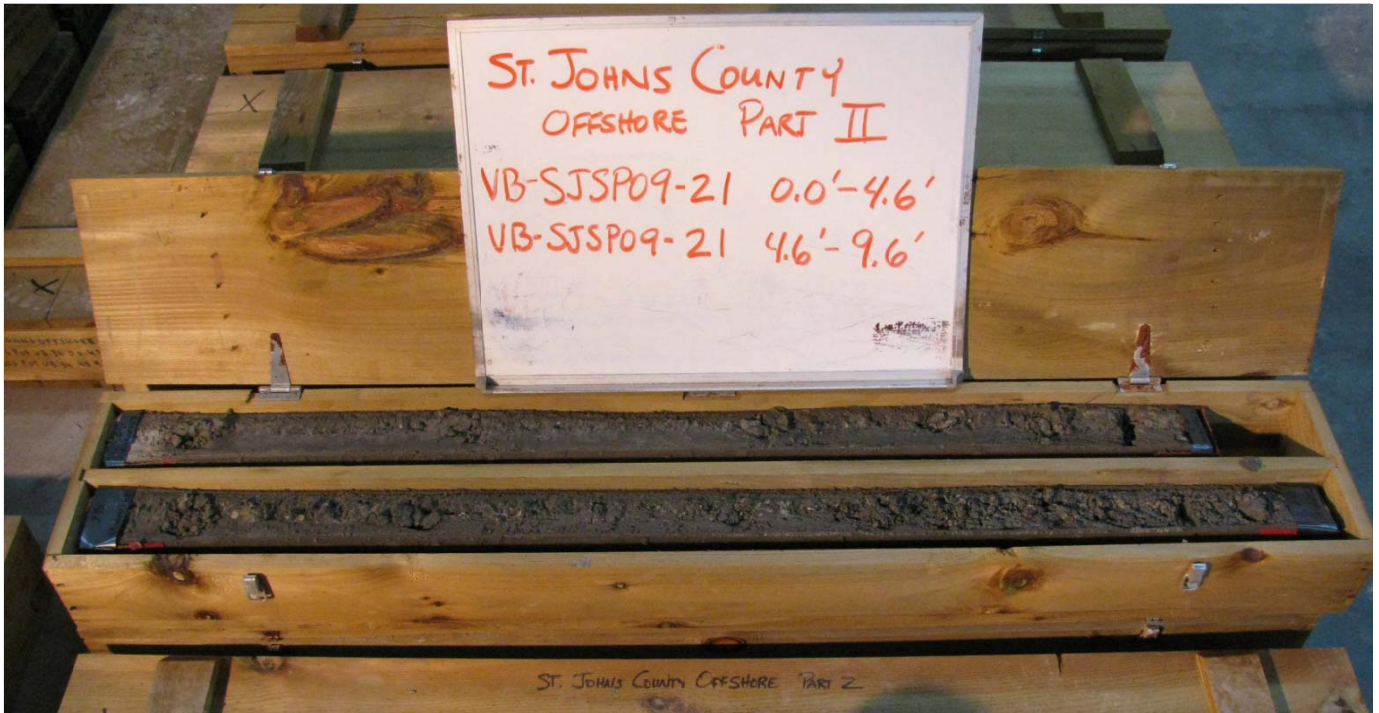 ST. JOHNS COUNTY
OFFSHORE PART II
VB-SJSP09-21 0.0'-4.6'
VB-SJSP09-21 4.6'-9.6'
X
X
ST. JOHNS COUNTY OFFSHORE PART 2